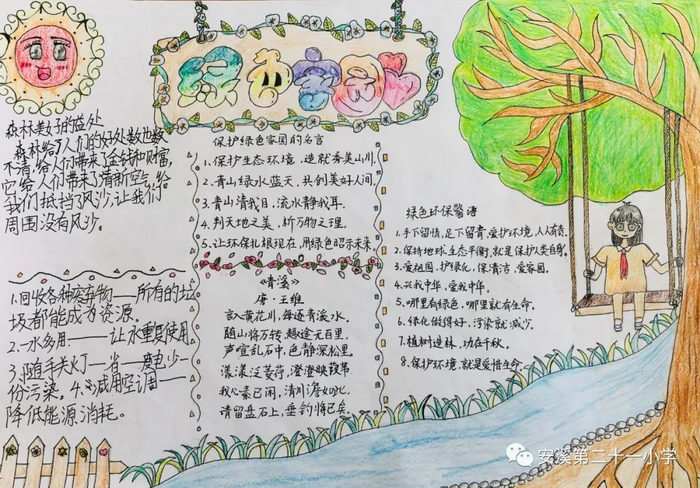 绿色家园
森林对人们的益处
森林给了人们的好处数也数
不清,给人们带来了金钱和财富,
它给人们带来了清新空气,给
我们抵挡了风沙,让我们
周围没有风沙。
1.回收各种废弃物——所有的垃
圾都能成为资源。
2.一水多用——让水重复使用
3.随手关灯——省一度电少一
份污染。4.减用空调——
降低能源消耗。
保护绿色家园的名言
1.保护生态环境,造就秀美山川。
2.青山绿水蓝天,共创美好人间。
3.青山清我目,流水静我耳。
4.判天地之美,析万物之理。
5.让环保扎根现在,用绿色昭示未来。
《青溪》
唐·王维
言入黄花川,每逐青溪水。
随山将万转,趣途无百里。
声喧乱石中,色静深松里。
漾漾泛菱荇,澄澄映葭苇。
我心素已闲,清川澹如此。
请留盘石上,垂钓将已矣。
绿色环保警语
1.手下留情,足下留青,爱护环境,人人有责。
2.保持地球生态平衡,就是保护人类自身。
3.爱祖国,护绿化,保清洁,爱家园。
4.兴我中华,爱我中华。
5.哪里有绿色,哪里就有生命。
6.绿化做得好,污染就减少。
7.植树造林,功在千秋。
8.保护环境,就是爱惜生命。
安溪第二十一小学